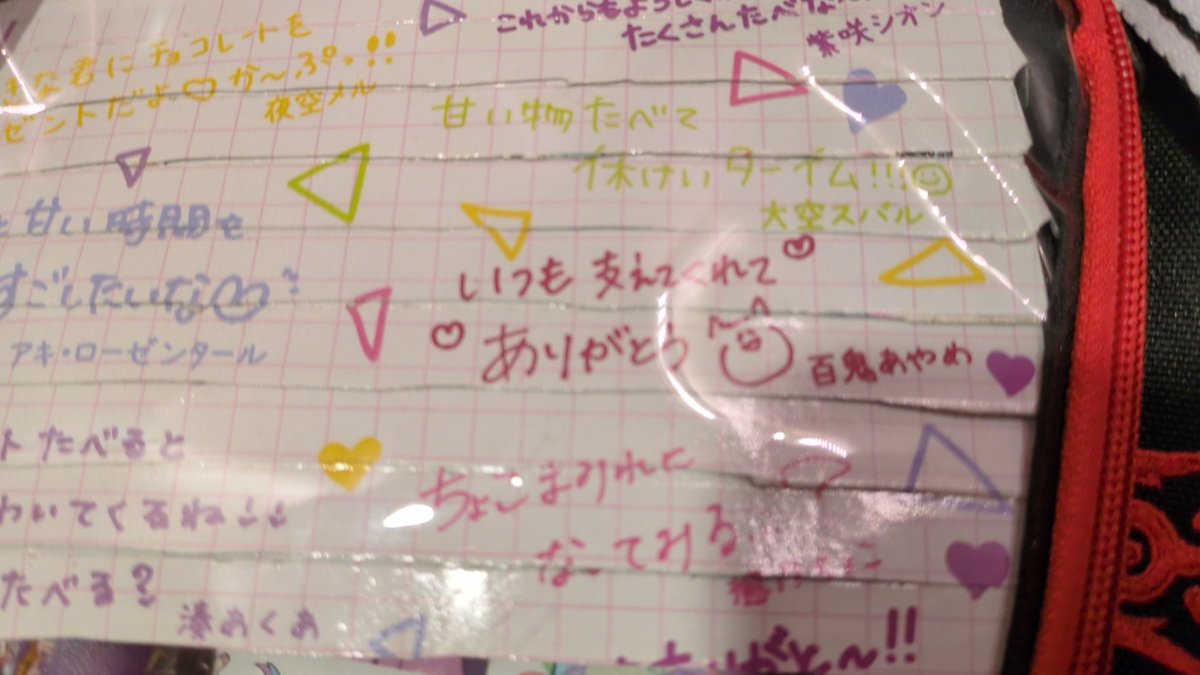 な君にチョコレートを
ゼントだよ♡か〜ぷっ!!
夜空メル
これからもよろし
たくさんたべな
紫咲シオン
甘い物たべて
休けいターイム!!!
大空スバル
甘い時間を
すごしたいな
アキ・ローゼンタール
いつも支えてくれて♡
♡ありがとう
百鬼あやめ
トたべると
わいてくるね
たべる?
湊あくあ
ちょこまみれに
なってみる